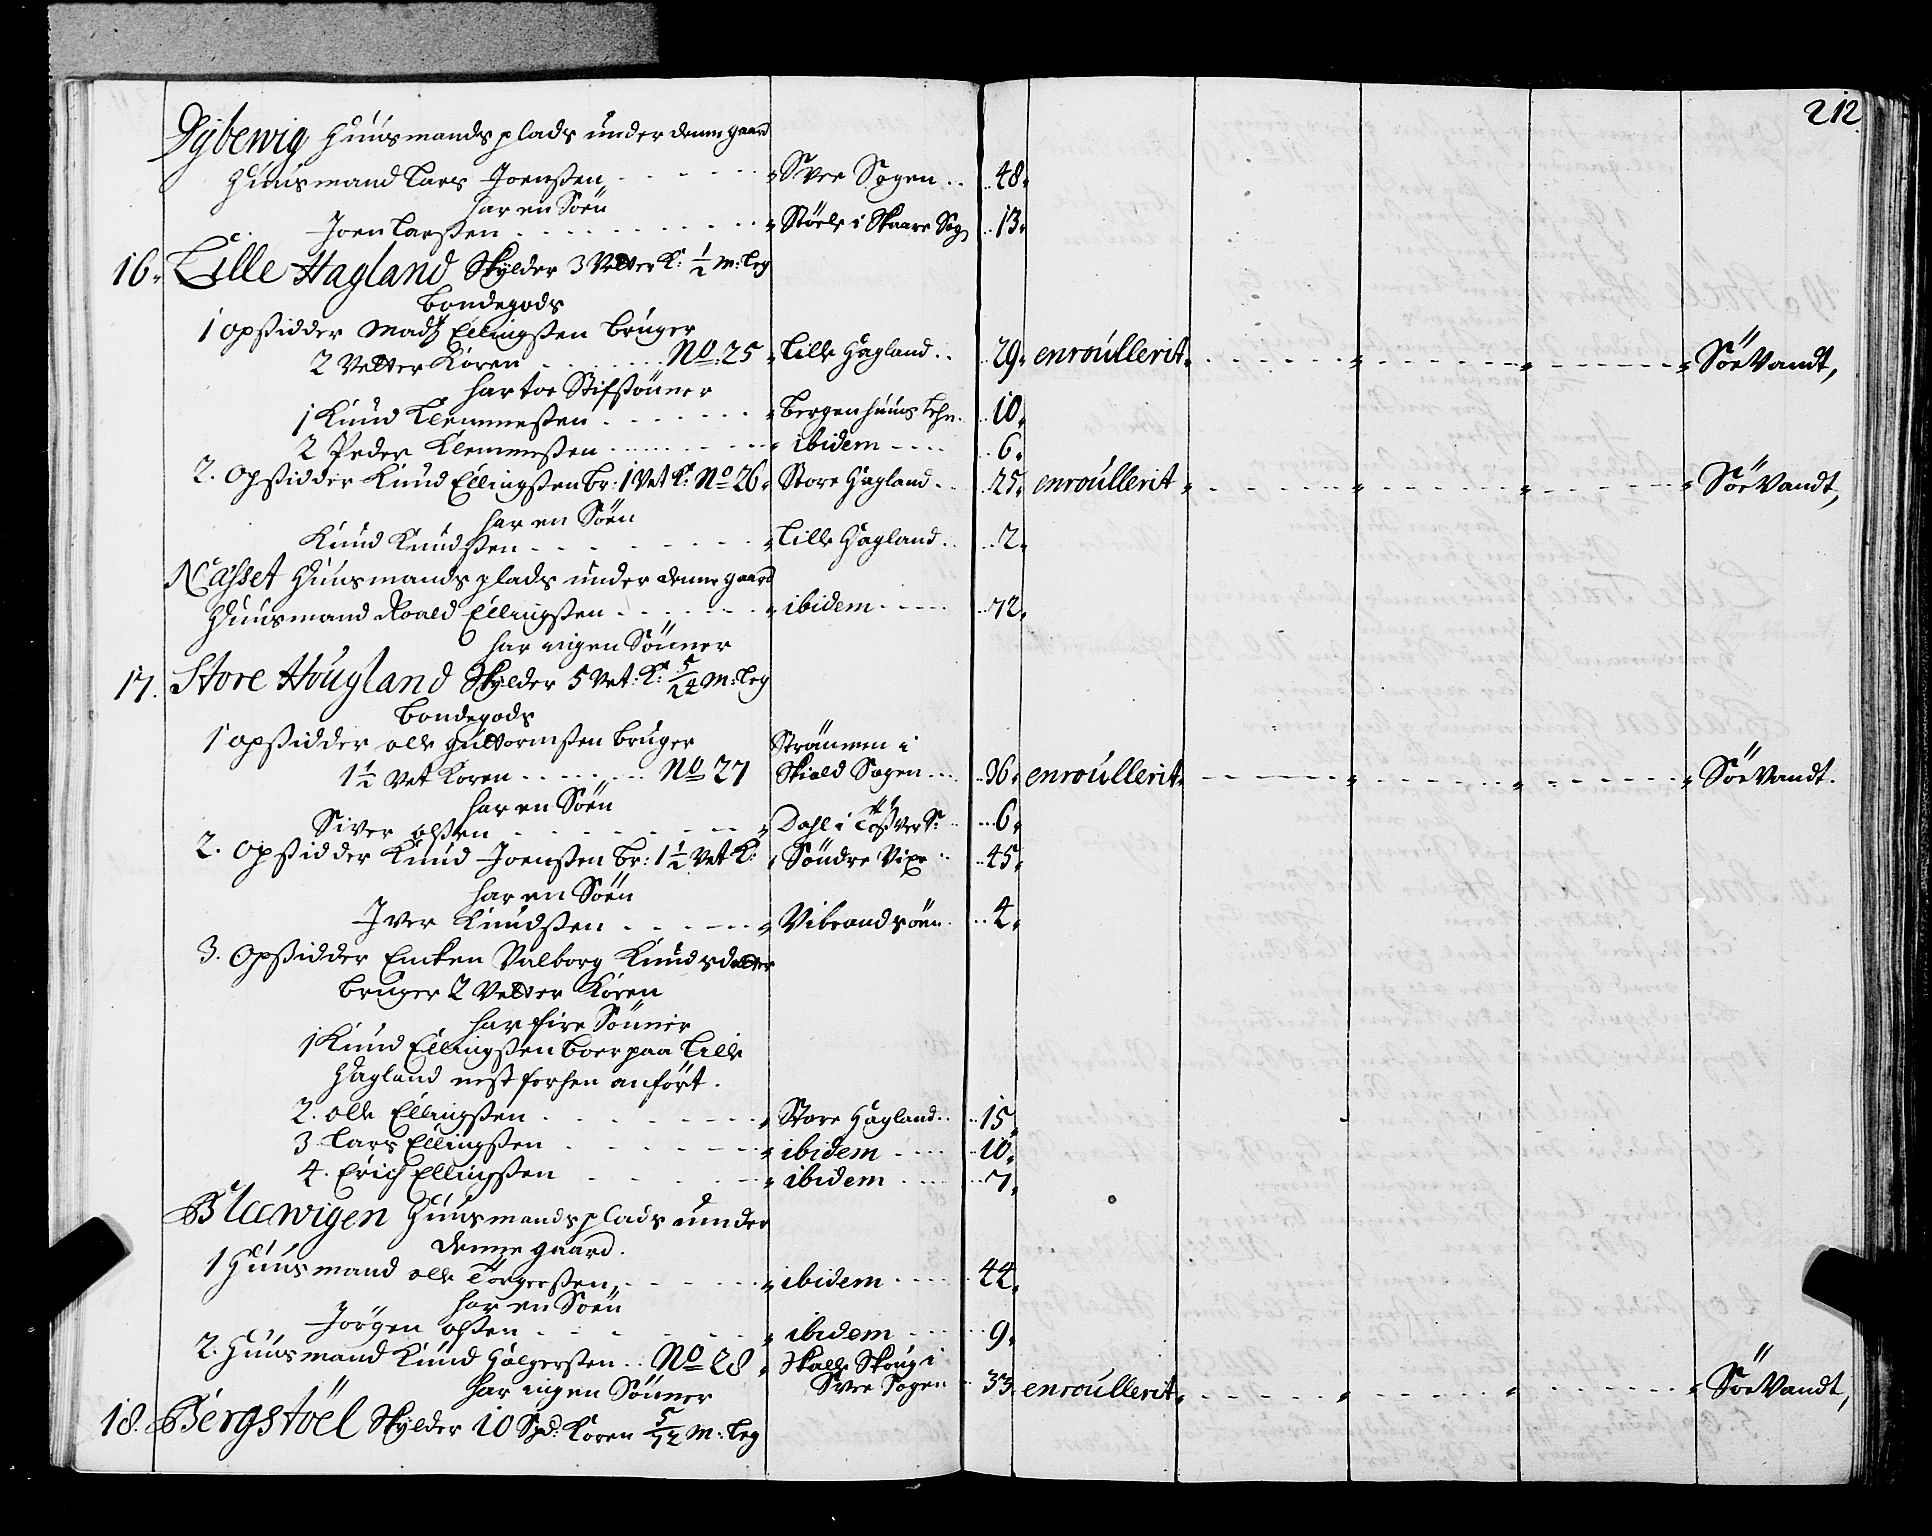 212
Dybewig Huusmands plads under denne gaard
Huusmand Lars Joenßen - - - - Svee Sogen .. 48.
har en Söen
Joen Larßen . . . . . . . Stöele i Skaare Sog .. 13.
16. Lille Hagland Skylder 3 Vetter K: ½ M: Leg
Bondegods
1 opßidder Madß Ellingßen bruger
2 Vetter Koren . . . . No: 25 Lille Hagland .. 29. enroúllerit - - - - Söe Vandt,
har toe Stifsönner
1 Knud Clemmeßen . . . . . Bergenhuus Lehn. .. 10.
2 Peder Clemmeßen . . . . . ibidem - - - - .. 6.
2. Opßidder Knud Ellingßen br: 1 Vet K: No 26. Store Hagland. . 25. enroúllerit - - - - Söe Vandt,
har en Söen
Knud Knudßen . . . . . Lille Hagland .. 2.
Nasset Huusmands plads under denne gaard
Huusmand Roald Ellingßen . . . . ibidem - - - - 72.
har ingen Sönner
17. Store Hougland Skylder 5 Vet: K: 5/24 M: Leg
Bondegods
1 opßidder olle Guttormßen bruger Strömmen i
1½ Vet Koren . . . . No 27 Skiold Sogen ... 36. enroúllerit - - - - Söe Vandt.
har en Söen
Siver olßen - - - - - Dahl i S: .. 6.
2. opßidder Knud Joenßen br: 1½ Vet K: Söndre Vixe .. 45.
har en Söen
Iver Knudßen . . . . . Vibrandsöen .. 4.
3. Opßidder Encken Valborg Knudsdatter
bruger 2 Vetter Koren
har fire Sönner
1 Knud Ellingßen boer paa Lille
Hagland nest forhen anfört.
2. olle Ellingßen . . . . . Store Hagland .. 15.
3 Lars Ellingßen . . . . . ibidem - - - - 10.
4. Erich Ellingßen . . . . . ibidem . . . . 7.
Bleewigen Huusmands plads under
denne gaard.
1 Huusmand olle Torgerßen . . . . ibidem . . . . 44.
har en Söen
Jörgen olßen . . . . . ibidem . . . . 9.
2. Huusmand Knud Holgerßen .. No 28 Skalle Skoug i
har ingen Sönner Svee Sogen . 33. enroúllerit - - - - Söe Vandt,
18. Bergstöel Skylder 10 Spd: Koren 5/12 M: Leg